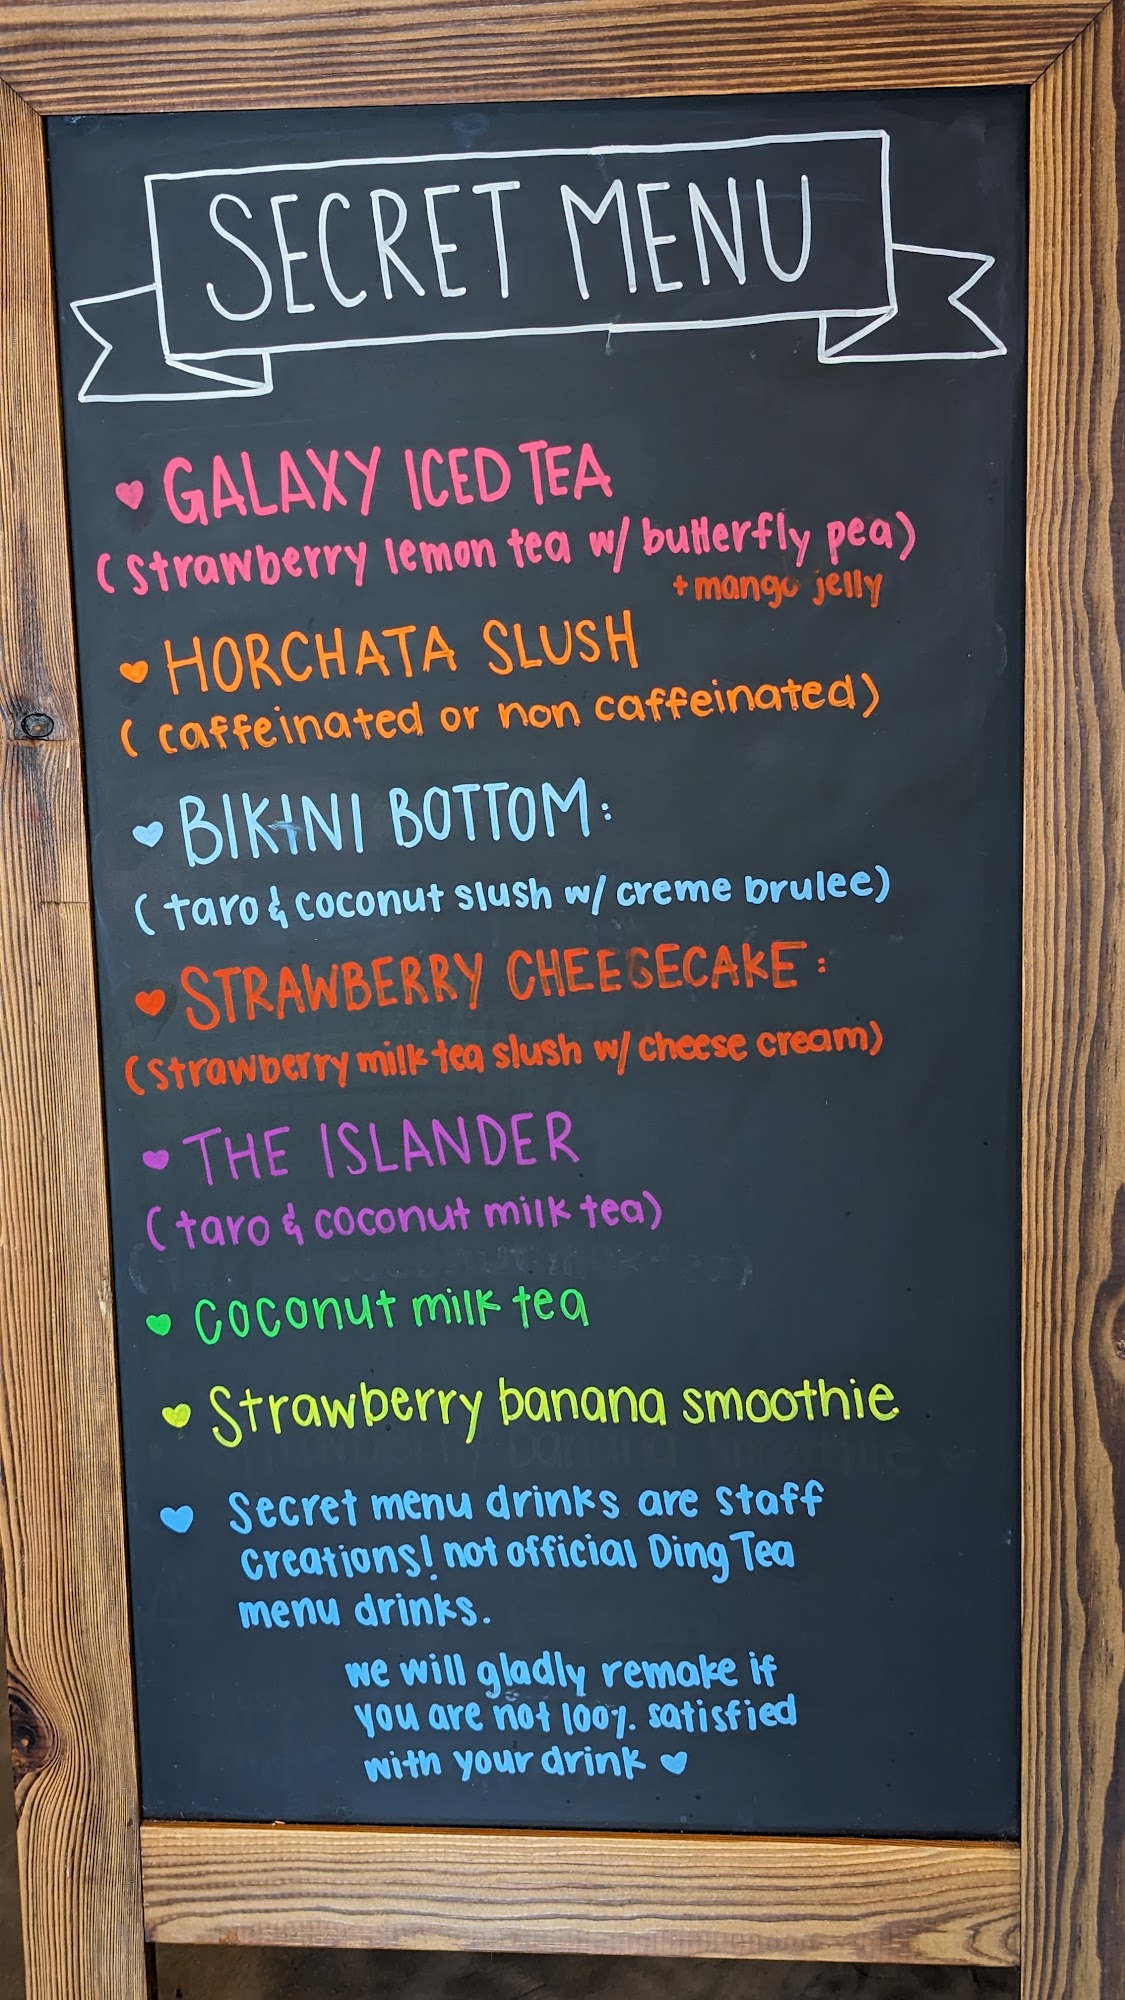 SECRET MENU
GALAXY ICED TEA
(strawberry lemon tea w/ butterfly pea)
+ mango jelly
HORCHATA SLUSH
(caffeinated or non caffeinated)
BIKINI BOTTOM:
(taro & coconut slush w/ creme brulee)
STRAWBERRY CHEESECAKE:
(strawberry milk tea slush w/ cheese cream)
THE ISLANDER
(taro & coconut milk tea)
Coconut milk tea
Strawberry banana smoothie
Secret menu drinks are staff
creations! not official Ding Tea
menu drinks.
we will gladly remake if
you are not 100%. satisfied
with your drink